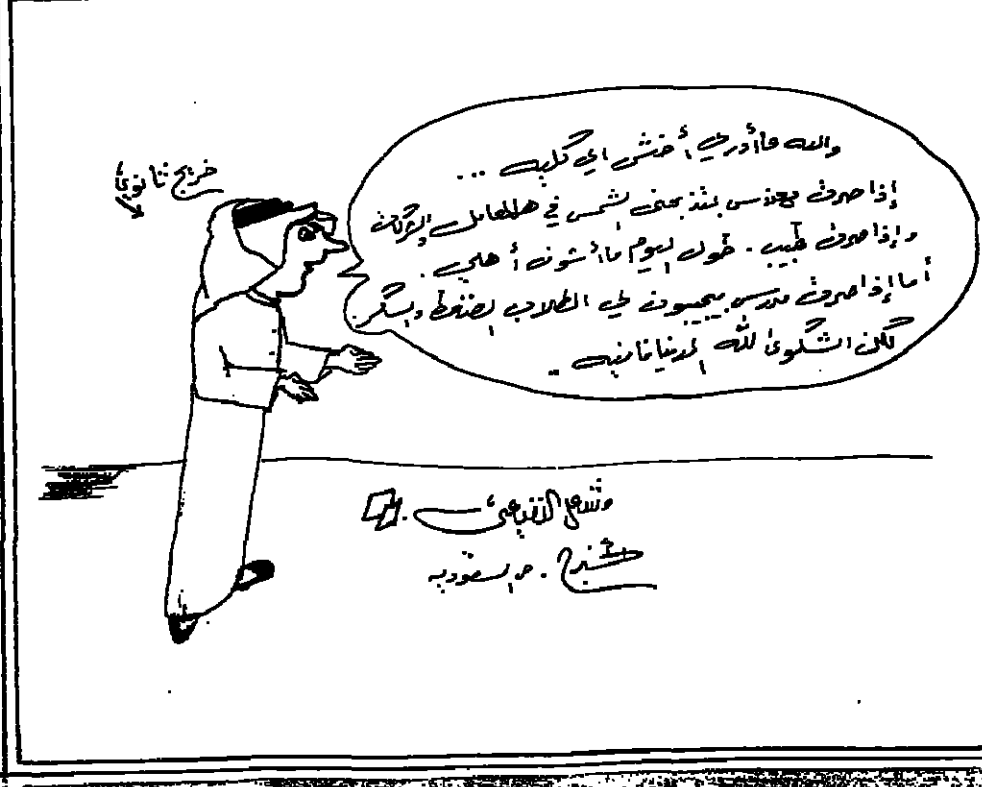 خريج ثانوي
والله ما أدري أخش اي كليه ...
إذا صرت مهندس بتذبحني الشمس في هالمعامل والشركات
وإذا صرت طبيب . طول اليوم ما أشوف أهلي .
أما إذا صرت مدرس بيجيبون لي الطلاب الضغط والسكر
لكن الشكوى لله الدنيا فانيه ..
مشعل
السعوديه